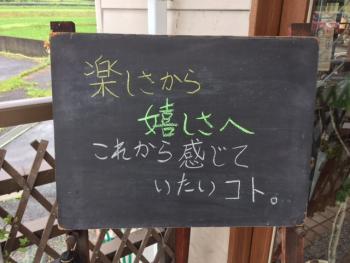 楽しさから
嬉しさへ
これから感じて
いたいコト。